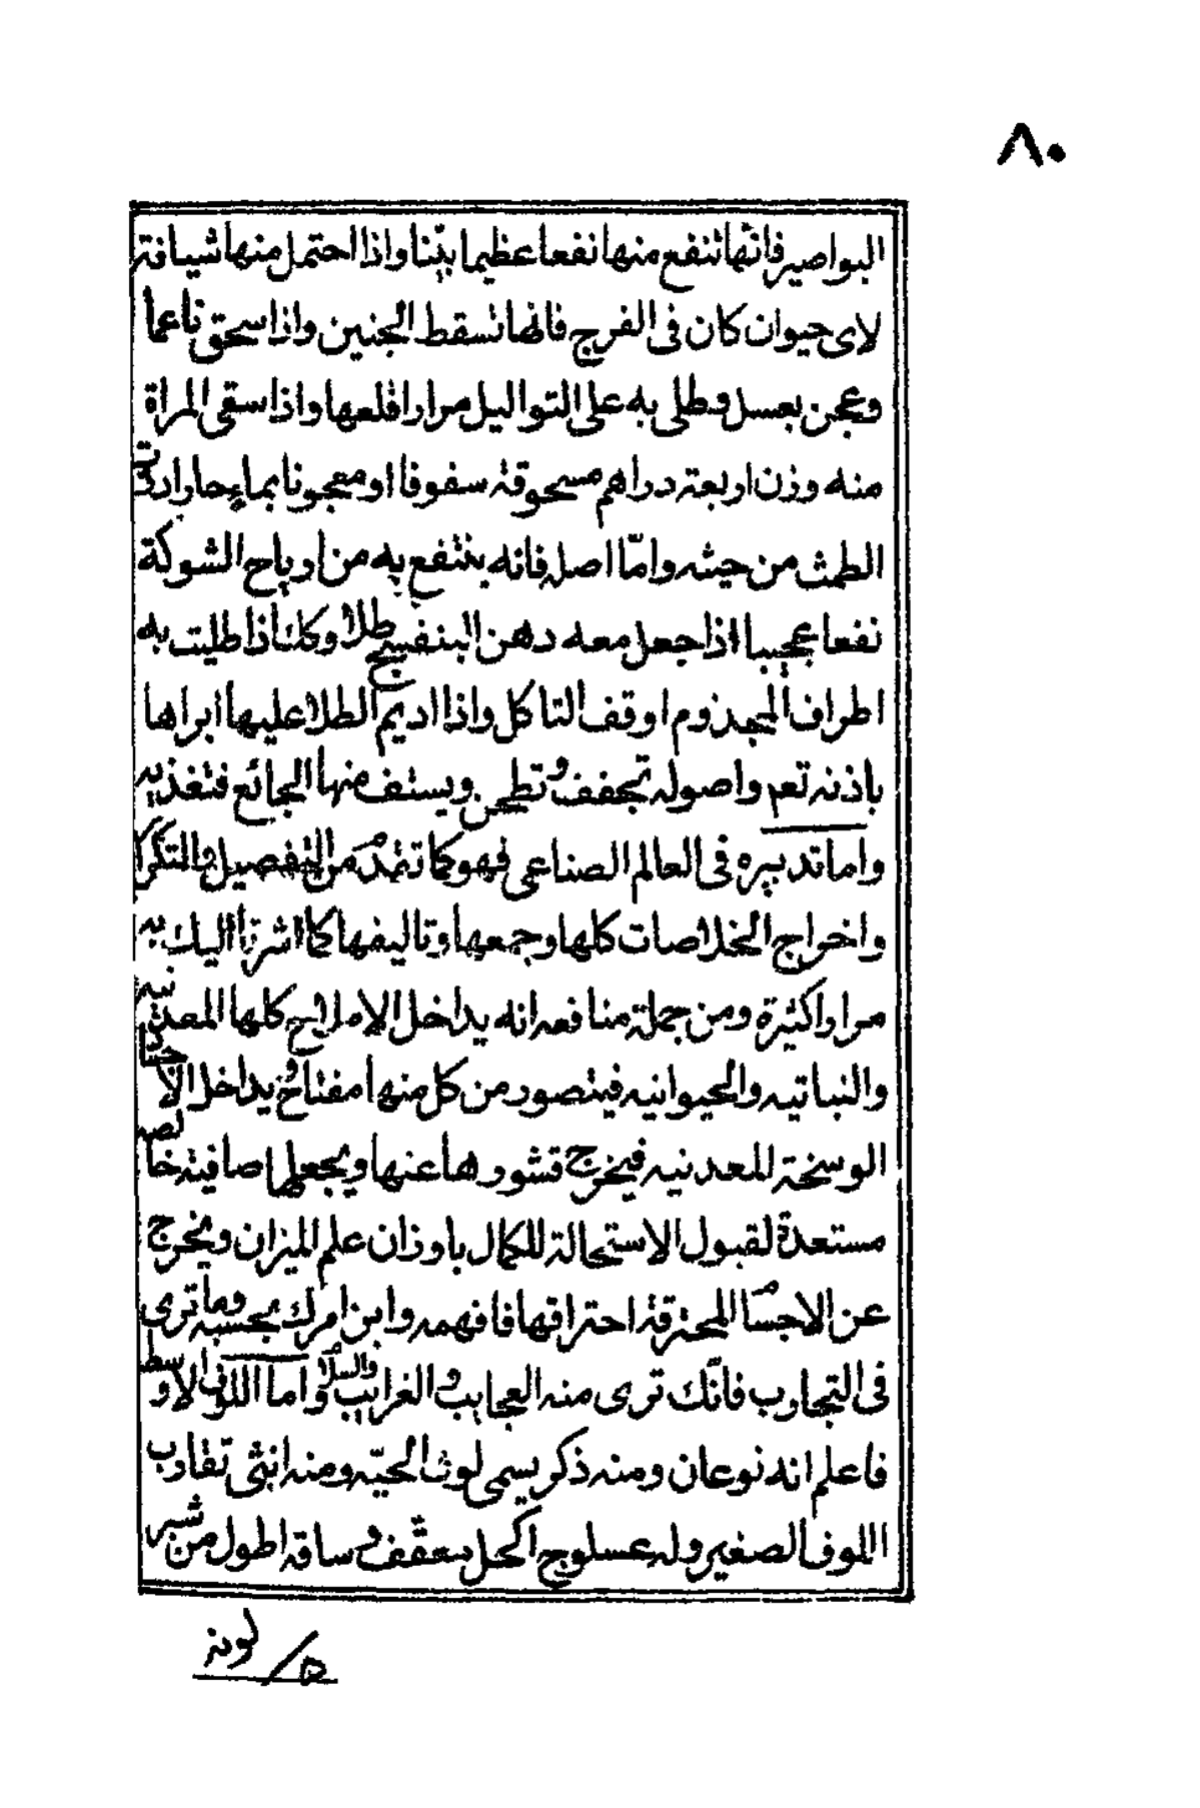 ٨٠
البواصير فانها تنفع منها نفعا عظيما بيّنا واذا احتمل منها شيافة
لاى حيوان كان فى الفرج فانها تسقط الجنين واذا سحق ناعما
وعجن بعسل وطلى به على التواليل مرارا قلعها واذا سقى المراة
منه وزن اربعة دراهم مسحوقة سفوفا او معجونا بماء حار ادر
الطمث من حينه وامّا اصله فانه ينتفع به من ارياح الشوكة
نفعا عجيبا اذا جعل معه دهن البنفسج طلاء وكذا اذا طليت به
اطراف المجذوم اوقف التاكل واذا اديم الطلا عليها ابراها
باذنه تعم واصوله تجفف وتطحن ويستف منها الجائع فتغذيه
واما تدبيره فى العالم الصناعى فهو كما تقدم من التفصيل والتكرا
واخراج الخلاصات كلها وجمعها وتاليفها كما اشرنا اليك به
مرارا كثيرة ومن جملة منافعه انه يداخل الاملاح كلها المعدنيه
والنباتيه والحيوانيه فيتصور من كل منها مفتاح يداخل الاجسا
الوسخة المعدنيه فيخرج قشورها عنها ويجعلها صافية خالصه
مستعدة لقبول الاستحالة للكمال باوزان علم الميزان ويخرج
عن الاجسا المحترقة احتراقها فافهمه وابن امرك بحسبه وما ترى
فى التجارب فانّك ترى منه العجايب والغرايب والسلا واما اللوف الاوسط
فاعلم انه نوعان ومنه ذكر يسمى لوف الحيّه ومنه انثى تقارب
اللوف الصغير وله عسلوج اكحل معقّف وساقه اطول من شبر
لونه